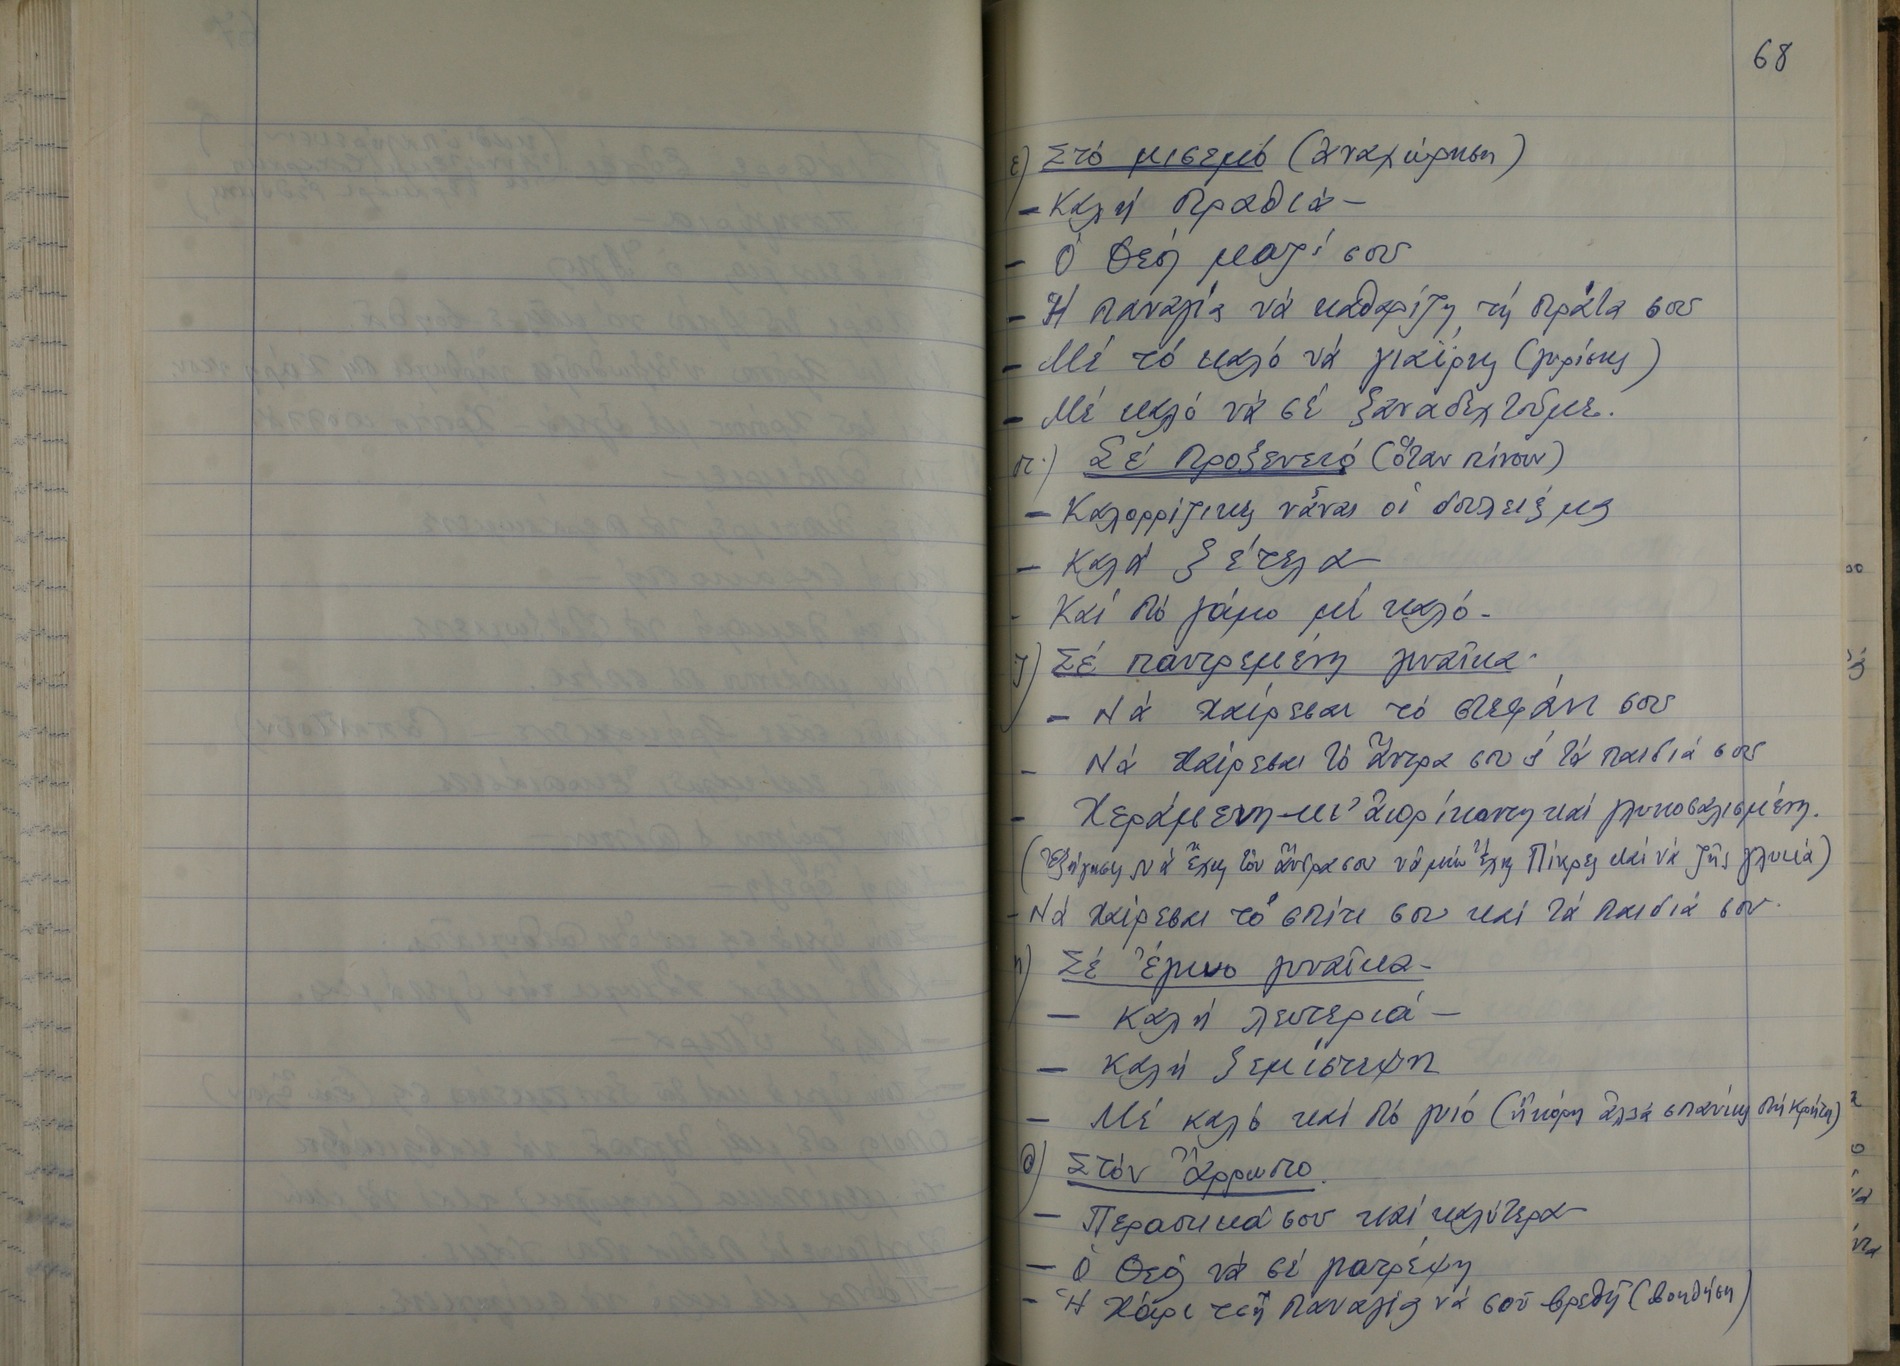 68
ε) Στό μισεμό (ἀναχώρηση)
- Καλή Πραθιά -
- Ὁ Θεός μαζί σου
- Ἡ Παναγία νά καθαρίζη τή Πράτα σου
- Μέ τό καλό νά γιαείρης (γυρίσης)
- Μέ καλό νά σέ ξαναδεχτοῦμε.
στ.) Σέ Προξενειό (ὅταν πίνουν)
- Καλορρίζικες νἆναι οἱ δουλειές μας
- Καλά ξέτελα
- Καί στό γάμο μέ καλό -
ζ) Σέ παντρεμένη γυναῖκα.
- Νά χαίρεσαι τό στεφάνι σου
- Νά χαίρεσαι τό ἄντρα σου ἤ τά παιδιά σου
- Χεράμενη - κι' ἀπρίκαντη καί γλυκοσαλισμένη.
(Ἐξήγηση νά ἔχης τόν ἄνδρα σου νά μήν ἔχης Πίκρες καί νά ζῆς γλυκιά)
- Νά χαίρεσαι τό σπίτι σου καί τά παιδιά σου.
η) Σέ ἔγκυο γυναῖκα -
- Καλή λευτεριά -
- Καλή ξεμίστεψη
- Μέ καλό καί στό γυιό (ἤ κόρη ἀλλά σπανίως στή Κρήτη)
θ) Στόν ἄρρωστο.
- Περαστικά σου καί καλύτερα
- Ὁ Θεός νά σέ γιατρέψη
- Ἡ Χάρι τσῆ Παναγίας νά σοῦ βρεθῆ (βοηθήση)